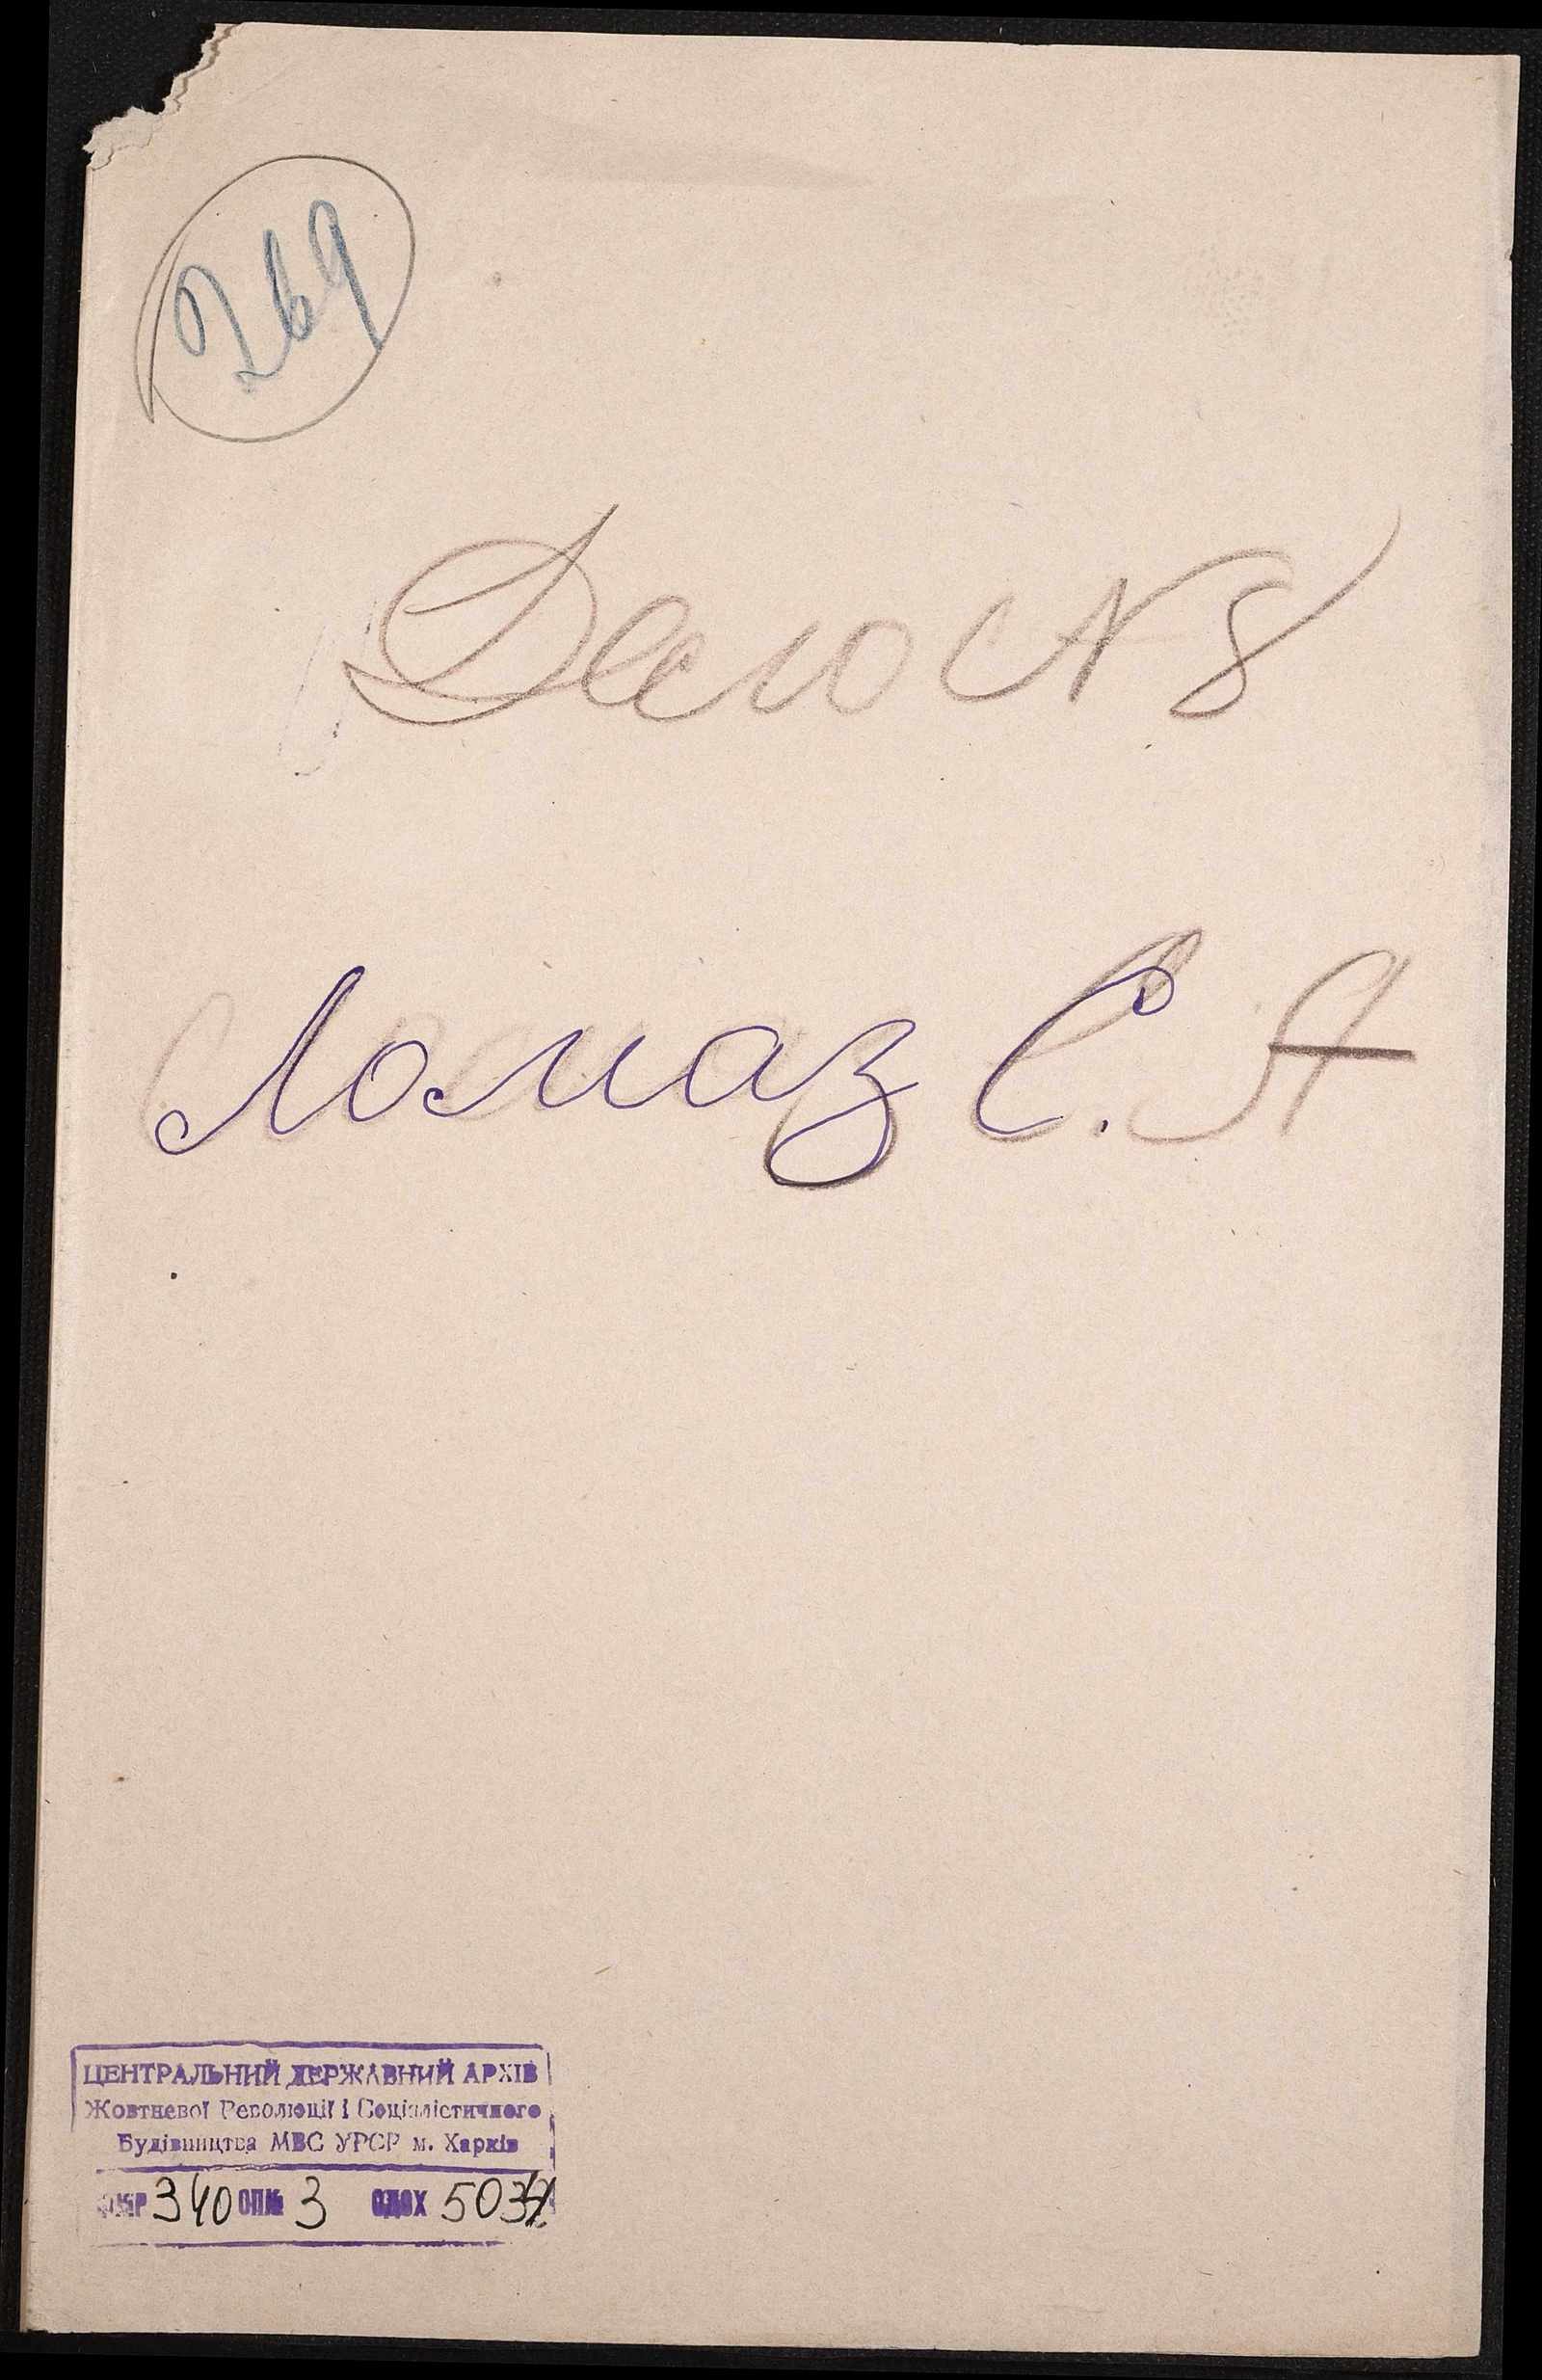 269
Дело № 8
Ломаз С. А
ЦЕНТРАЛЬНИЙ ДЕРЖАВНИЙ АРХІВ
Жовтневої Революції і Соціалістичного
Будівництва МВС УРСР м. Харків
340 ОП№ 3 ОДОХ